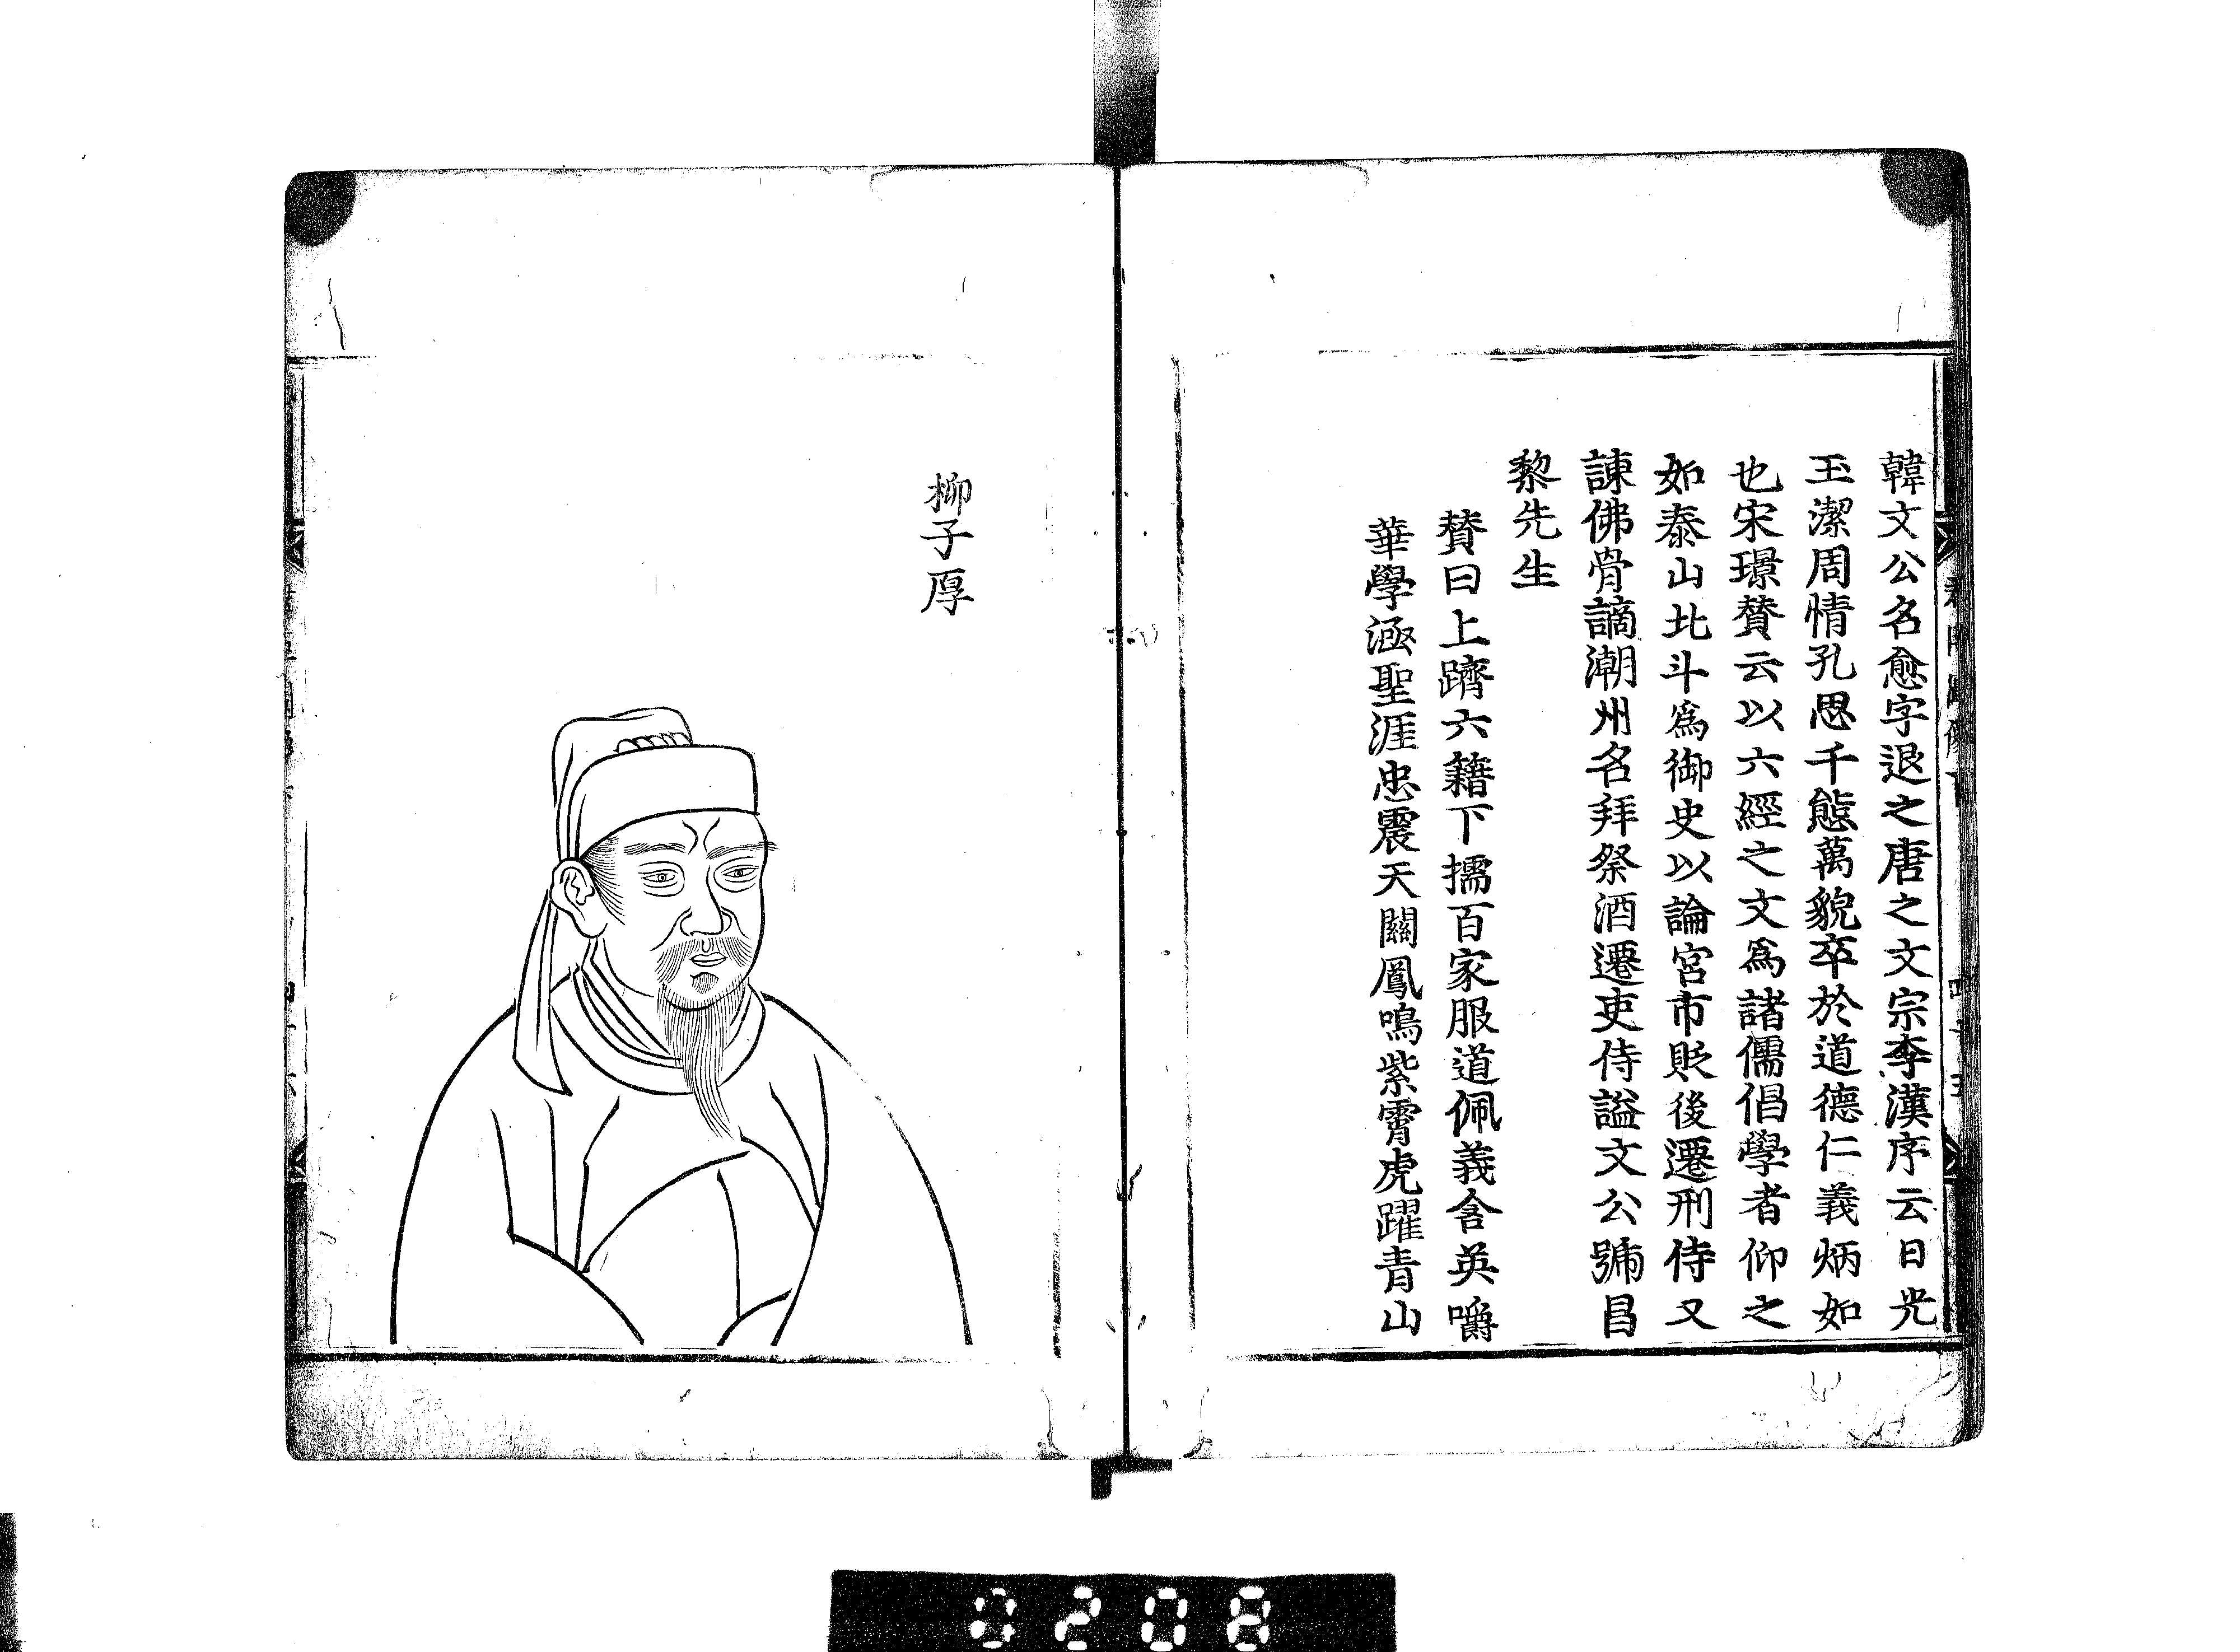 韓文公名愈字退之唐之文宗李漢序云日光
玉潔周情孔思千態萬貌卒於道德仁義炳如
也宋璟賛云以六經之文爲諸儒倡學者仰之
如泰山北斗爲御史以論宮市貶後遷刑侍又
諫佛骨謫潮州名拜祭酒遷吏侍謚文公號昌
黎先生
賛曰上躋六籍下擩百家服道佩義含英嚼
華學涵聖涯忠震天關鳳鳴紫霄虎躍青山
柳子厚
0208